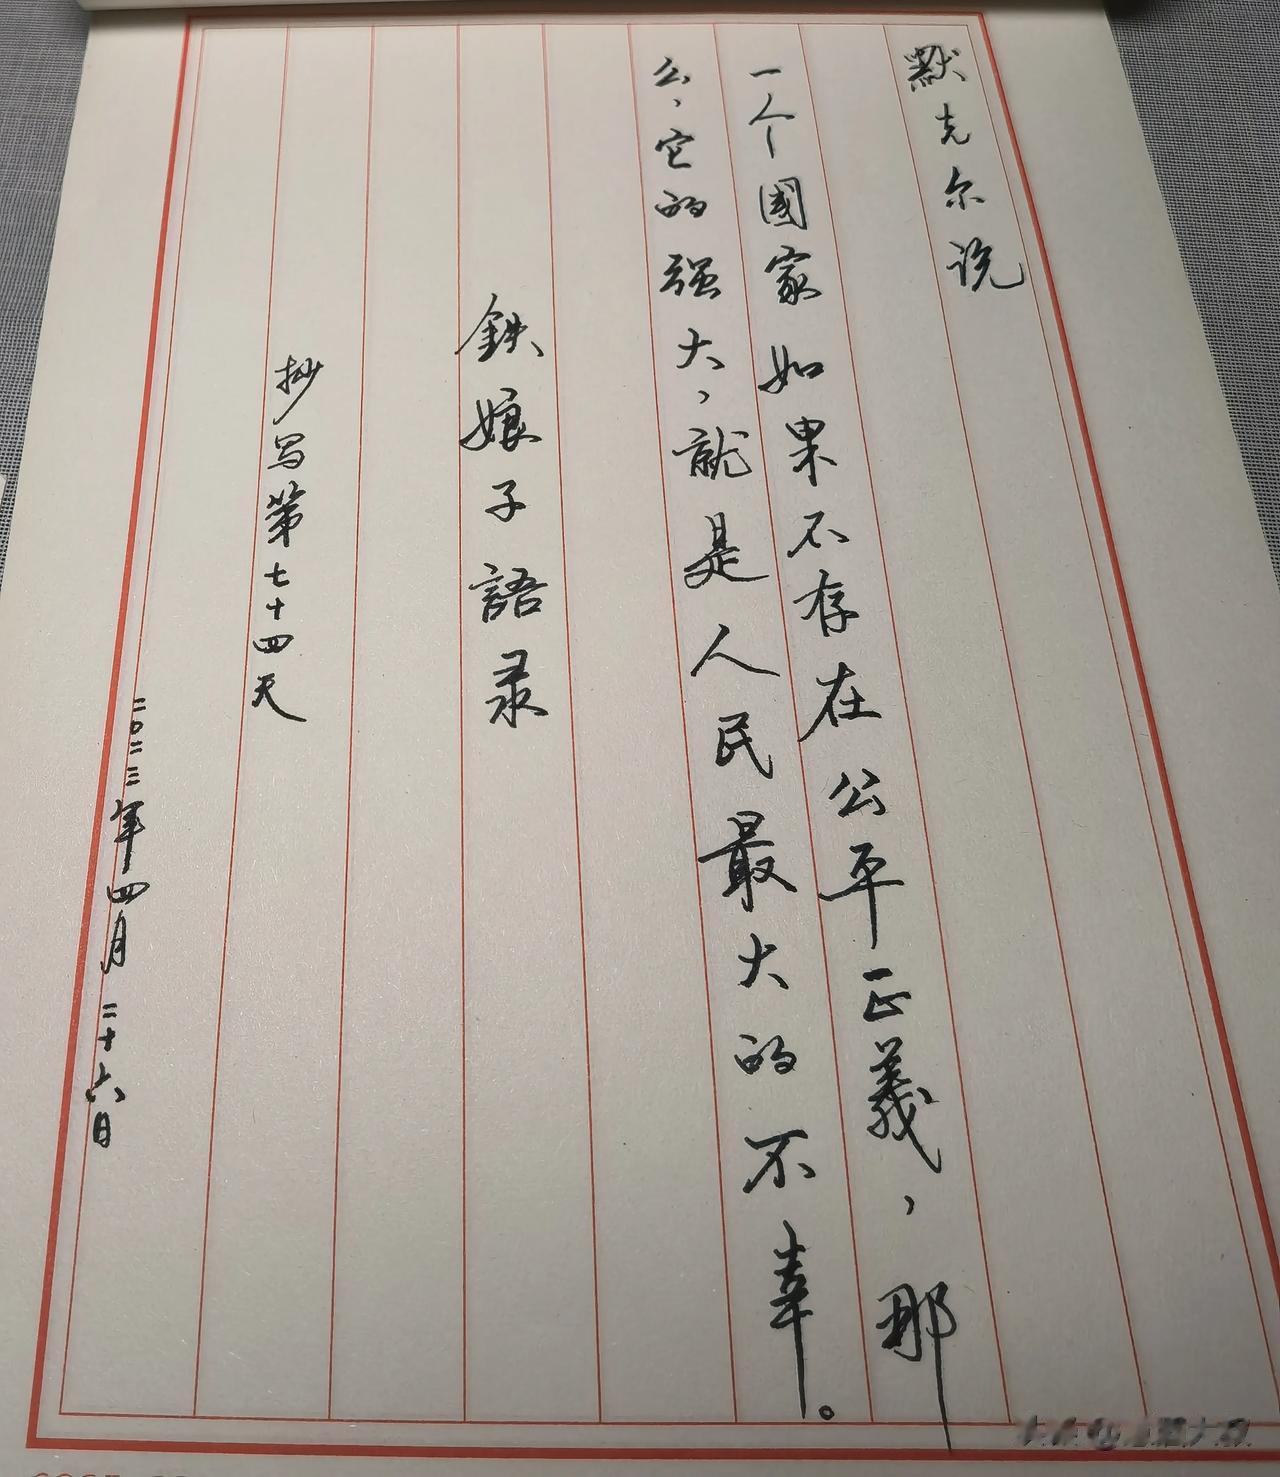 默克尔说
一个國家如果不存在公平正義，那
么，它的强大，就是人民最大的不幸。
鉄娘子語录
抄写第七十四天
二〇二三年四月二十六日